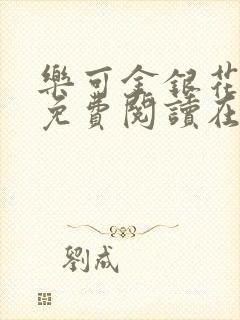 樂可金銀花
免費閱讀在
劉成